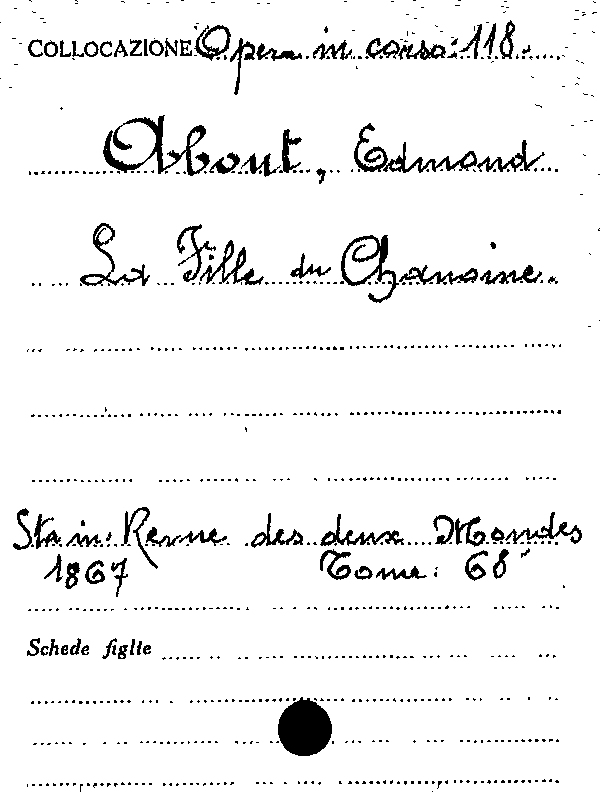 COLLOCAZIONE Opera in corso: 118.
About, Edmond
La Fille du Chanoine.
Sta in: Revue des deux Mondes
1867 Tome: 68°
Schede figlie